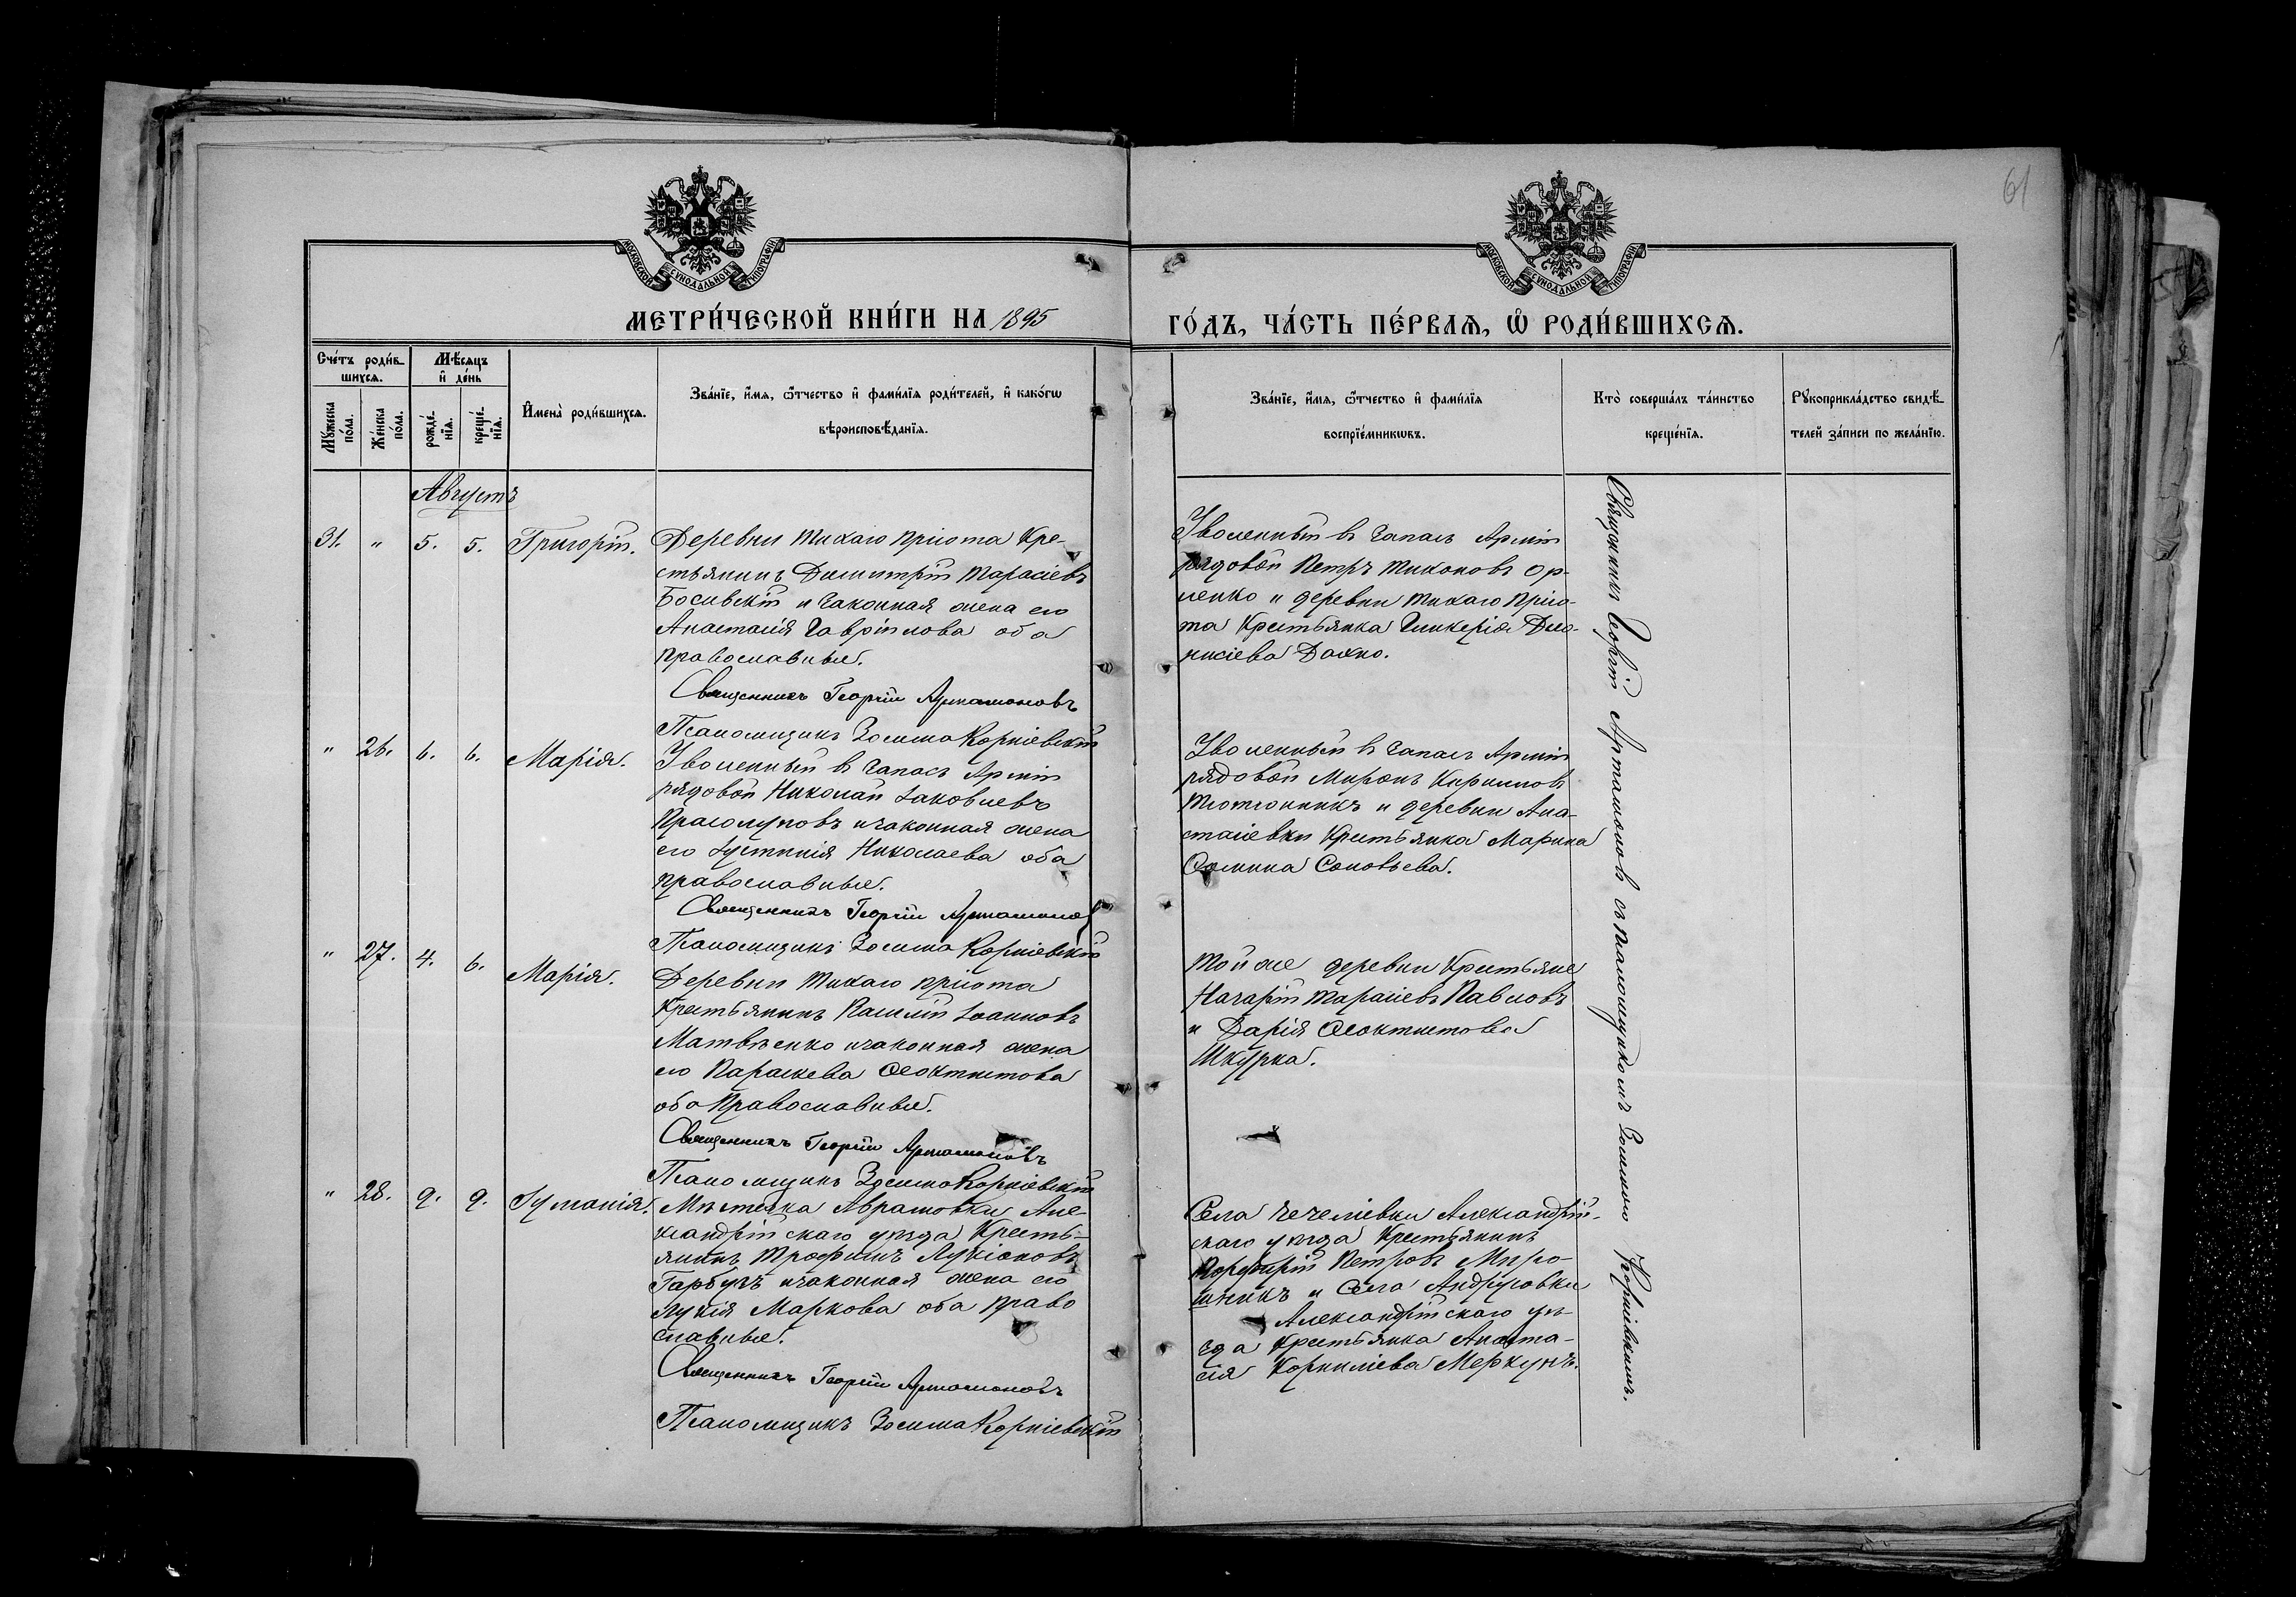 61
МОСКОВСКОЙ СѴНОДАЛЬНОЙ ТИПОГРАФІИ
МОСКОВСКОЙ СѴНОДАЛЬНОЙ ТИПОГРАФІИ
МЕТРИ́ЧЕСКОЙ КНИ́ГИ НА 1895
ГО́ДЪ, ЧА́СТЬ ПЕ́РВАѦ, Ѡ҆ РОДИ́ВШИХСѦ.
Сче́тъ роди́в-
шихсѧ.
Мꙋ́жеска по́ла.
Же́нска по́ла.
Мѣ́сѧцъ
и҆ де́нь
рожде́-нїѧ.
креще́-нїѧ.
И҆мена̀ роди́вшихсѧ.
Зва́нїе, и҆́мѧ, ѻ҆́тчество и҆ фами́лїѧ роди́телей, и҆ како́гѡ
вѣроисповѣ́данїѧ.
Зва́нїе, и҆́мѧ, ѻ҆́тчество и҆ фами́лїѧ
воспрїе́мникѡвъ.
Кто̀ соверша́лъ та́инство
креще́нїѧ.
Рꙋкоприкла́дство свидѣ́-
телей за́писи по жела́нїю.
Августъ
31. " 5. 5. Григорій.
Деревни Тихаго Пріюта Кре-
стьянинъ Димитрій Тарасіевъ
Босивскій и законная жена его
Анастасія Гавріилова оба
православные.
Священникъ Георгій Артамоновъ
Псаломщикъ Зосима Корніевскій
Уволенный въ запасъ Арміи
рядовой Петръ Тихоновъ Ор-
ленко и деревни Тихаго Прію-
та Крестьянка Гликерія Дио-
нисіева Дахно.
" 26. 6. 6. Марія.
Уволенный въ запасъ Арміи
рядовой Николай Іаковлевъ
Праголуповъ и законная жена
его Іустинія Николаева оба
православные.
Священникъ Георгій Артамоновъ
Псаломщикъ Зосима Корніевскій
Уволенный въ запасъ Арміи
рядовой Миронъ Кирилловъ
Тютюнникъ и деревни Ана-
стасіевки Крестьянка Марина
Ѳомина Соловьева.
" 27. 4. 6. Марія.
Деревни Тихаго Пріюта
Крестьянинъ Василій Іоанновъ
Матвѣенко и законная жена
его Параскева Ѳеоктистова
оба Православные.
Священникъ Георгій Артамоновъ
Псаломщикъ Зосима Корніевскій
Той же деревни Крестьяне
Назарій Тарасіевъ Павловъ
и Дарія Ѳеоктистова
Шкурка.
" 28. 9. 9. Іуліанія.
Мѣстечка Аврамовки Але-
ксандрійскаго уѣзда Кресть-
янинъ Трофимъ Лукіановъ
Гарбузъ и законная жена его
Лукія Маркова оба право
славные.
Священникъ Георгій Артамоновъ
Псаломщикъ Зосима Корніевскій
Села Чечеліевки Александрій-
скаго уѣзда Крестьянинъ
Порфирій Петровъ Миро-
шникъ и села Андрусовки
Александрійскаго уѣ-
зда Крестьянка Анаста-
сія Корниліева Меркунъ.
Священникъ Георгій Артамоновъ съ псаломщикомъ Зосимою Корніевскимъ.